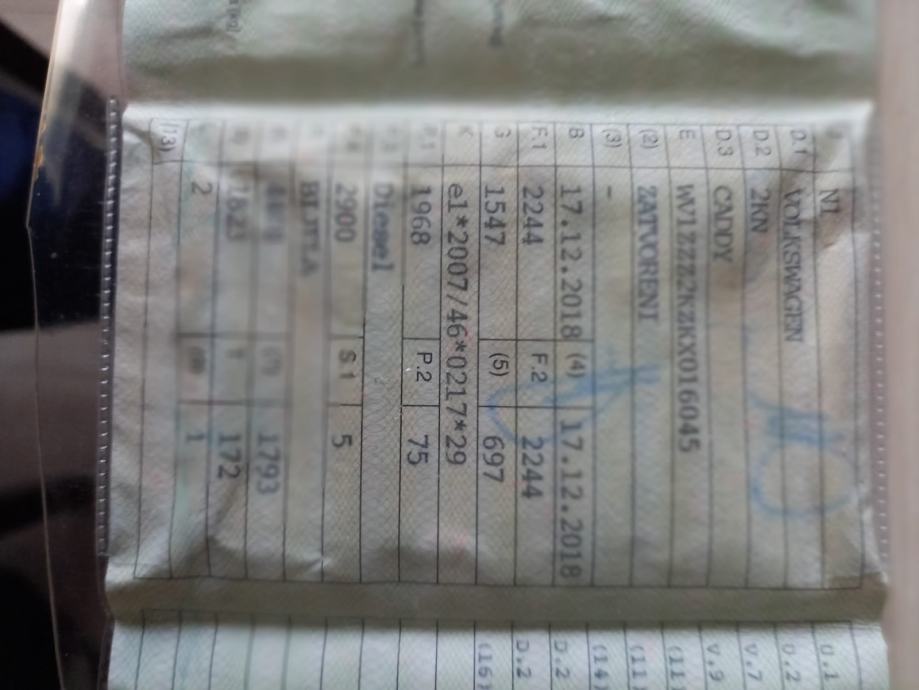 J N1
D.1 VOLKSWAGEN
D.2 2KN
D.3 CADDY
E WV1ZZZ2KZKX016045
(2) ZATVORENI
(3) -
B 17.12.2018 (4) 17.12.2018
F.1 2244 F.2 2244
G 1547 (5) 697
K e1*2007/46*0217*29
P.1 1968 P.2 75
Diesel
2900 S.1 5
BIJELA
(7) 1793
1823 172
2 1
(13)
O.1
O.2
V.7
V.9
(11)
(11)
(14)
D.2
D.2
(16)